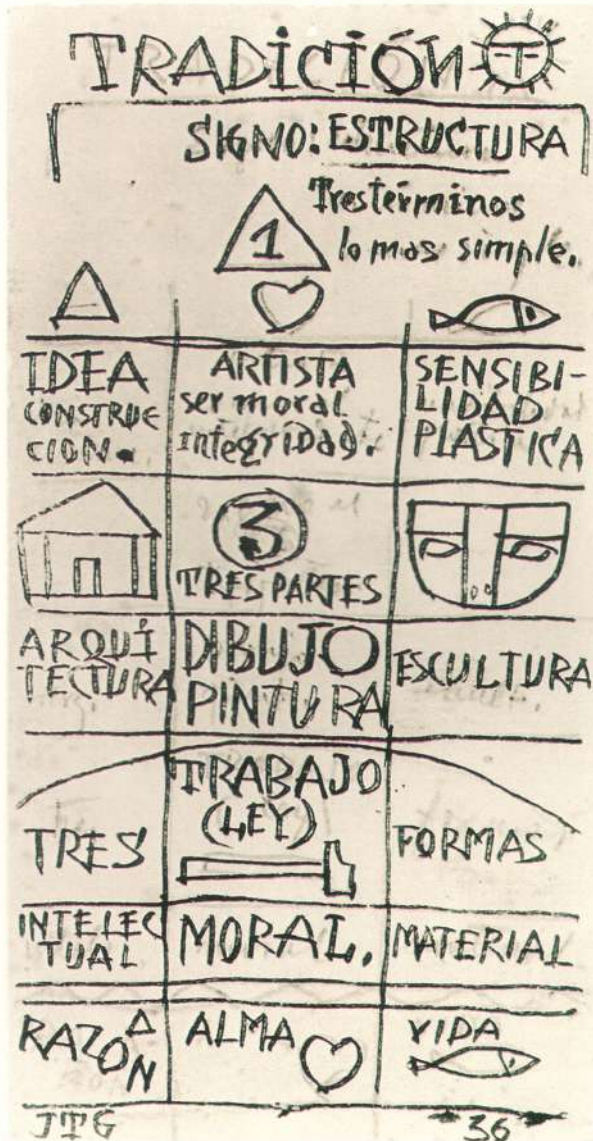 TRADICIÓN T
SIGNO: ESTRUCTURA
Tres términos
1
lo mas simple.
IDEA
CONSTRUC
CION.
ARTISTA
ser moral
integridad.
SENSIBI-
LIDAD
PLASTICA
3
TRES PARTES
ARQUI
TECTURA
DIBUJO
PINTURA
ESCULTURA
TRABAJO
(LEY)
TRES
FORMAS
INTELEC
TUAL
MORAL.
MATERIAL
RAZON
ALMA
VIDA
JTG
36